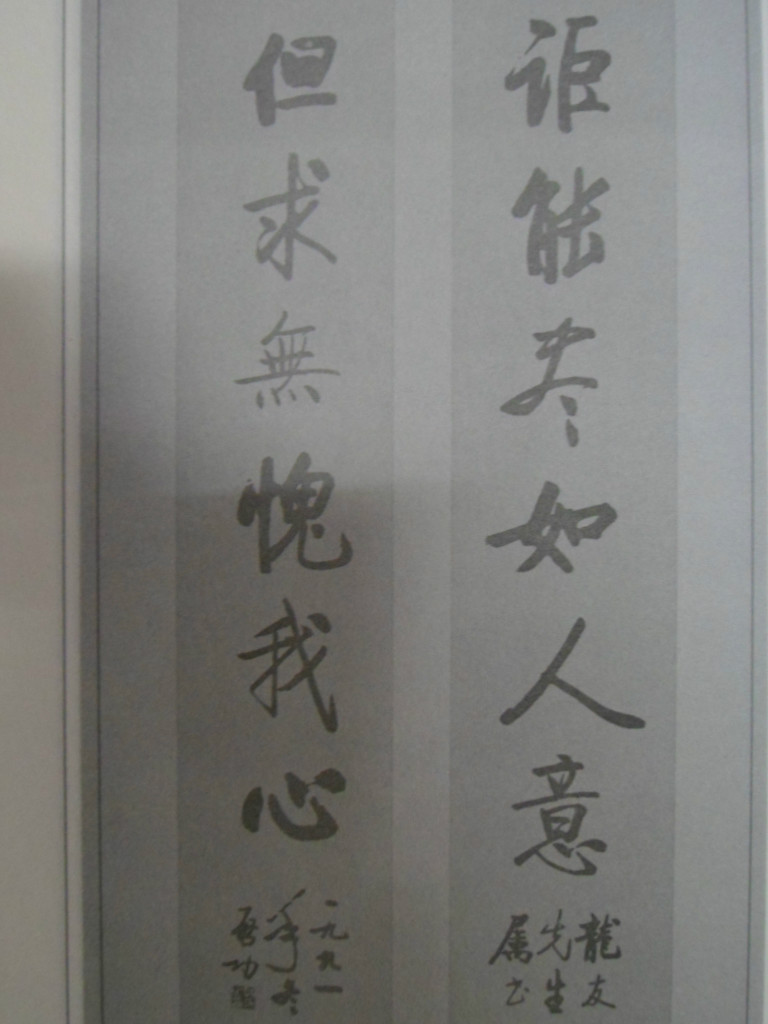 詎能尽如人意
龍友
先生
属书
但求無愧我心
一九九一
年冬
啓功